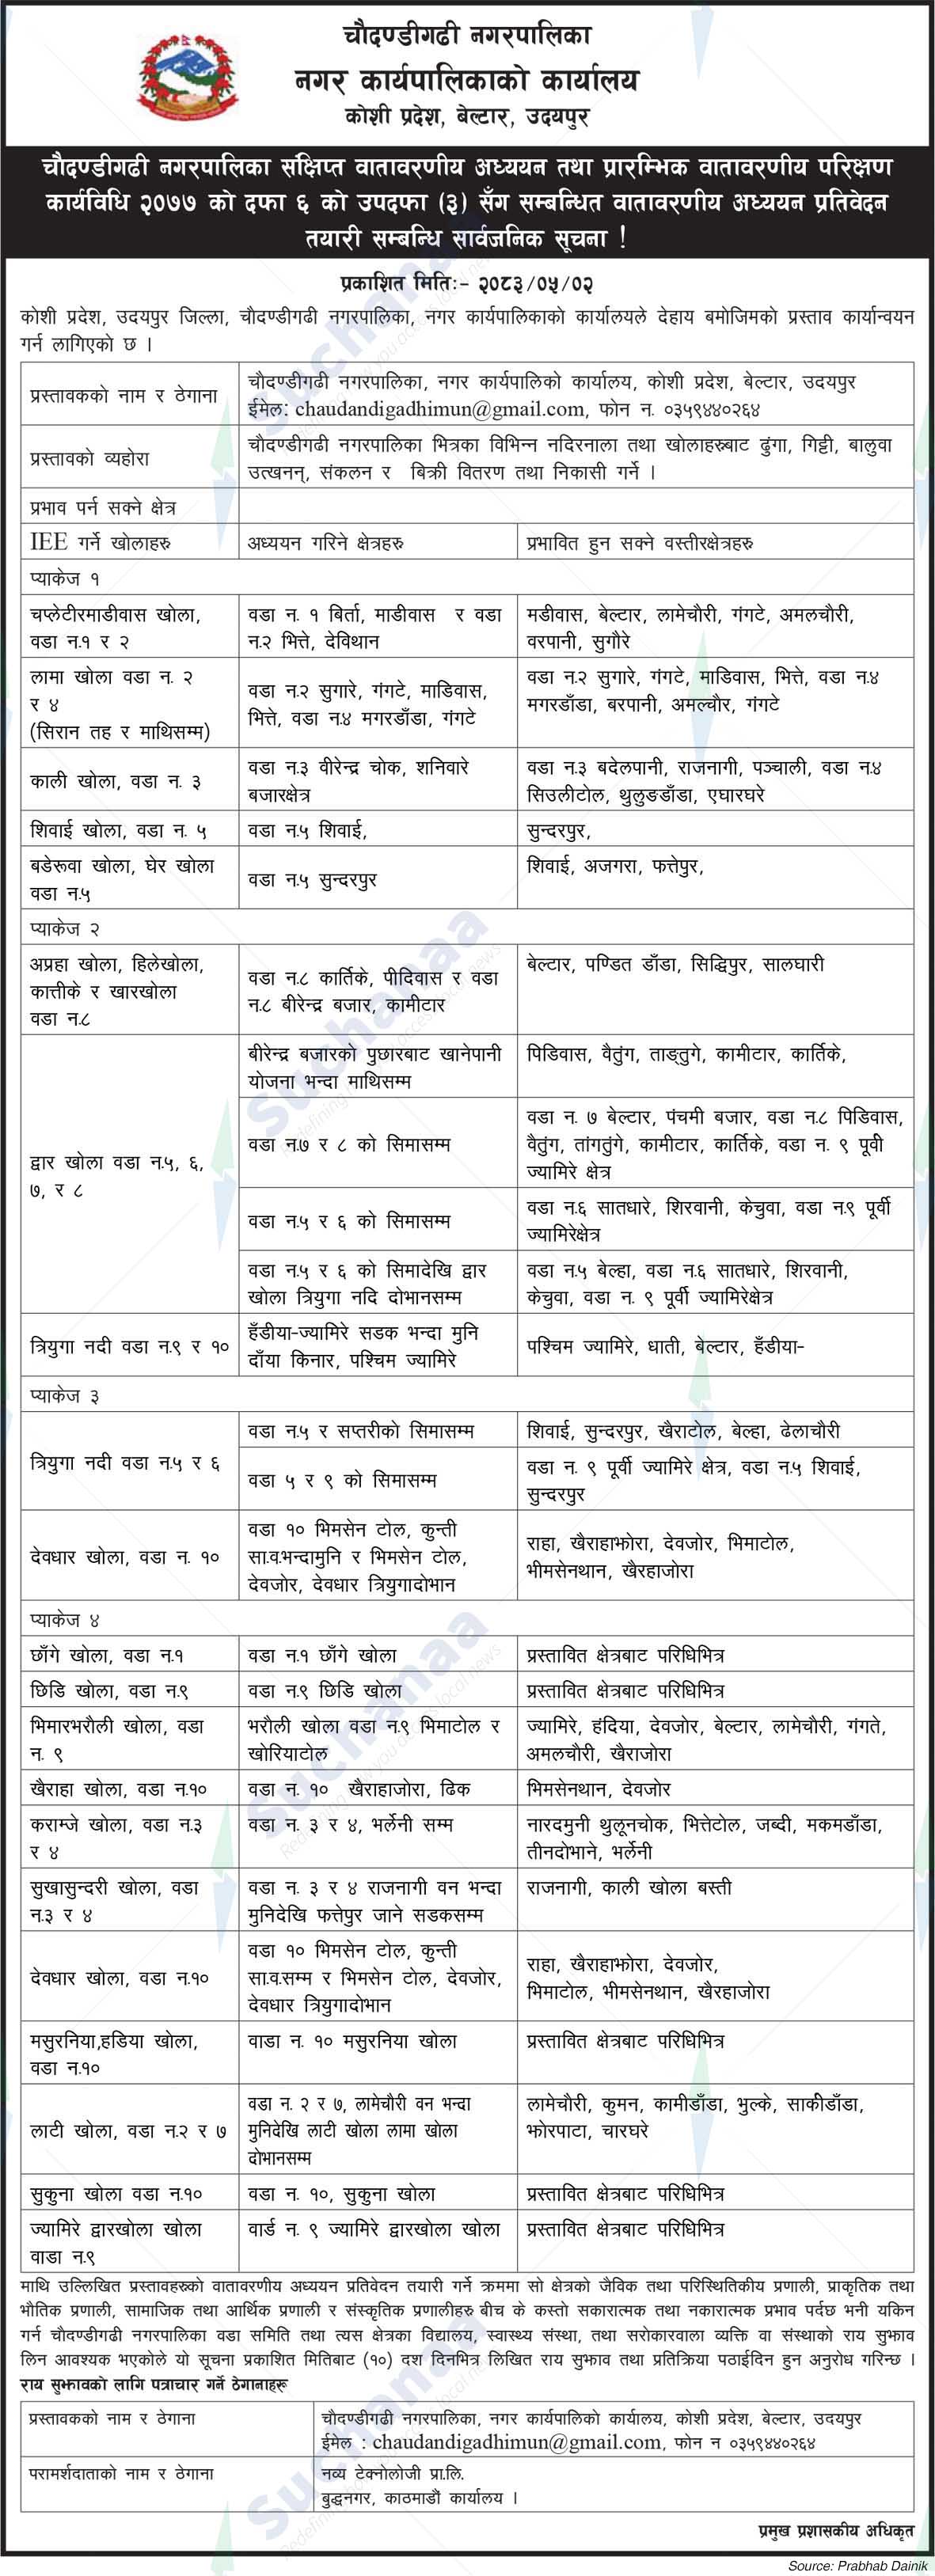 चौदण्डीगढी नगरपालिका
नगर कार्यपालिकाको कार्यालय
कोशी प्रदेश, बेल्टार, उदयपुर
चौदण्डीगढी नगरपालिका संक्षिप्त वातावरणीय अध्ययन तथा प्रारम्भिक वातावरणीय परिक्षण
कार्यविधि २०७७ को दफा ६ को उपदफा (३) सँग सम्बन्धित वातावरणीय अध्ययन प्रतिवेदन
तयारी सम्बन्धि सार्वजनिक सूचना !
प्रकाशित मितिः- २०८३/०५/०२
कोशी प्रदेश, उदयपुर जिल्ला, चौदण्डीगढी नगरपालिका, नगर कार्यपालिकाको कार्यालयले देहाय बमोजिमको प्रस्ताव कार्यान्वयन
गर्न लागिएको छ ।
प्रस्तावकको नाम र ठेगाना
चौदण्डीगढी नगरपालिका, नगर कार्यपालिको कार्यालय, कोशी प्रदेश, बेल्टार, उदयपुर
ईमेल: chaudandigadhimun@gmail.com, फोन न. ०३५९४४०२६४
प्रस्तावको व्यहोरा
चौदण्डीगढी नगरपालिका भित्रका विभिन्न नदिरनाला तथा खोलाहरुबाट ढुंगा, गिट्टी, बालुवा
उत्खनन्, संकलन र बिक्री वितरण तथा निकासी गर्ने ।
प्रभाव पर्न सक्ने क्षेत्र
IEE गर्ने खोलाहरु
अध्ययन गरिने क्षेत्रहरु
प्रभावित हुन सक्ने वस्तीरक्षेत्रहरु
प्याकेज १
चप्लेटीरमाडीवास खोला,
वडा न.१ र २
वडा न. १ बिर्ता, माडीवास र वडा
न.२ भित्ते, देविथान
मडीवास, बेल्टार, लामेचौरी, गंगटे, अमलचौरी,
वरपानी, सुगौरे
लामा खोला वडा न. २
र ४
(सिरान तह र माथिसम्म)
वडा न.२ सुगारे, गंगटे, माडिवास,
भित्ते, वडा न.४ मगरडाँडा, गंगटे
वडा न.२ सुगारे, गंगटे, माडिवास, भित्ते, वडा न.४
मगरडाँडा, बरपानी, अमल्चौर, गंगटे
काली खोला, वडा न. ३
वडा न.३ वीरेन्द्र चोक, शनिवारे
बजारक्षेत्र
वडा न.३ बदेलपानी, राजनागी, पञ्चाली, वडा न.४
सिउलीटोल, थुलुङडाँडा, एघारघरे
शिवाई खोला, वडा न. ५
वडा न.५ शिवाई,
सुन्दरपुर,
बडेरूवा खोला, घेर खोला
वडा न.५
वडा न.५ सुन्दरपुर
शिवाई, अजगरा, फत्तेपुर,
प्याकेज २
अप्रहा खोला, हिलेखोला,
कात्तीके र खारखोला
वडा न.८
वडा न.८ कार्तिके, पीदिवास र वडा
न.८ बीरेन्द्र बजार, कामीटार
बेल्टार, पण्डित डाँडा, सिद्धिपुर, सालघारी
द्वार खोला वडा न.५, ६,
७, र ८
बीरेन्द्र बजारको पुछारबाट खानेपानी
योजना भन्दा माथिसम्म
पिडिवास, वैतुंग, ताङ्तुगे, कामीटार, कार्तिके,
वडा न.७ र ८ को सिमासम्म
वडा न. ७ बेल्टार, पंचमी बजार, वडा न.८ पिडिवास,
वैतुंग, तांगतुंगे, कामीटार, कार्तिके, वडा न. ९ पूर्वी
ज्यामिरे क्षेत्र
वडा न.५ र ६ को सिमासम्म
वडा न.६ सातधारे, शिरवानी, केचुवा, वडा न.९ पूर्वी
ज्यामिरेक्षेत्र
वडा न.५ र ६ को सिमादेखि द्वार
खोला त्रियुगा नदि दोभानसम्म
वडा न.५ बेल्हा, वडा न.६ सातधारे, शिरवानी,
केचुवा, वडा न. ९ पूर्वी ज्यामिरेक्षेत्र
त्रियुगा नदी वडा न.९ र १०
हँडीया-ज्यामिरे सडक भन्दा मुनि
दाँया किनार, पश्चिम ज्यामिरे
पश्चिम ज्यामिरे, धाती, बेल्टार, हँडीया-
प्याकेज ३
त्रियुगा नदी वडा न.५ र ६
वडा न.५ र सप्तरीको सिमासम्म
शिवाई, सुन्दरपुर, खैराटोल, बेल्हा, ढेलाचौरी
वडा ५ र ९ को सिमासम्म
वडा न. ९ पूर्वी ज्यामिरे क्षेत्र, वडा न.५ शिवाई,
सुन्दरपुर
देवधार खोला, वडा न. १०
वडा १० भिमसेन टोल, कुन्ती
सा.व.भन्दामुनि र भिमसेन टोल,
देवजोर, देवधार त्रियुगादोभान
राहा, खैराहाझोरा, देवजोर, भिमाटोल,
भीमसेनथान, खैरहाजोरा
प्याकेज ४
छाँगे खोला, वडा न.१
वडा न.१ छाँगे खोला
प्रस्तावित क्षेत्रबाट परिधिभित्र
छिडि खोला, वडा न.९
वडा न.९ छिडि खोला
प्रस्तावित क्षेत्रबाट परिधिभित्र
भिमारभरौली खोला, वडा
न. ९
भरौली खोला वडा न.९ भिमाटोल र
खोरियाटोल
ज्यामिरे, हंदिया, देवजोर, बेल्टार, लामेचौरी, गंगते,
अमलचौरी, खैराजोरा
खैराहा खोला, वडा न.१०
वडा न. १० खैराहाजोरा, ढिक
भिमसेनथान, देवजोर
कराम्जे खोला, वडा न.३
र ४
वडा न. ३ र ४, भर्लेनी सम्म
नारदमुनी थुलूनचोक, भित्तेटोल, जब्दी, मकमडाँडा,
तीनदोभाने, भर्लेनी
सुखासुन्दरी खोला, वडा
न.३ र ४
वडा न. ३ र ४ राजनागी वन भन्दा
मुनिदेखि फत्तेपुर जाने सडकसम्म
राजनागी, काली खोला बस्ती
देवधार खोला, वडा न.१०
वडा १० भिमसेन टोल, कुन्ती
सा.व.सम्म र भिमसेन टोल, देवजोर,
देवधार त्रियुगादोभान
राहा, खैराहाझोरा, देवजोर,
भिमाटोल, भीमसेनथान, खैरहाजोरा
मसुरनिया,हडिया खोला,
वडा न.१०
वाडा न. १० मसुरनिया खोला
प्रस्तावित क्षेत्रबाट परिधिभित्र
लाटी खोला, वडा न.२ र ७
वडा न. २ र ७, लामेचौरी वन भन्दा
मुनिदेखि लाटी खोला लामा खोला
दोभानसम्म
लामेचौरी, कुमन, कामीडाँडा, भुल्के, सार्कीडाँडा,
झोरपाटा, चारघरे
सुकुना खोला वडा न.१०
वडा न. १०, सुकुना खोला
प्रस्तावित क्षेत्रबाट परिधिभित्र
ज्यामिरे द्वारखोला खोला
वाडा न.९
वार्ड न. ९ ज्यामिरे द्वारखोला खोला
प्रस्तावित क्षेत्रबाट परिधिभित्र
माथि उल्लिखित प्रस्तावहरुको वातावरणीय अध्ययन प्रतिवेदन तयारी गर्ने क्रममा सो क्षेत्रको जैविक तथा परिस्थितिकीय प्रणाली, प्राकृतिक तथा
भौतिक प्रणाली, सामाजिक तथा आर्थिक प्रणाली र संस्कृतिक प्रणालीहरु बीच के कस्तो सकारात्मक तथा नकारात्मक प्रभाव पर्दछ भनी यकिन
गर्न चौदण्डीगढी नगरपालिका वडा समिति तथा त्यस क्षेत्रका विद्यालय, स्वास्थ्य संस्था, तथा सरोकारवाला व्यक्ति वा संस्थाको राय सुझाव
लिन आवश्यक भएकोले यो सूचना प्रकाशित मितिबाट (१०) दश दिनभित्र लिखित राय सुझाव तथा प्रतिक्रिया पठाईदिन हुन अनुरोध गरिन्छ ।
राय सुझावको लागि पत्राचार गर्ने ठेगानाहरू
प्रस्तावकको नाम र ठेगाना
चौदण्डीगढी नगरपालिका, नगर कार्यपालिको कार्यालय, कोशी प्रदेश, बेल्टार, उदयपुर
ईमेल : chaudandigadhimun@gmail.com, फोन न ०३५९४४०२६४
परामर्शदाताको नाम र ठेगाना
नव्य टेक्नोलोजी प्रा.लि.
बुद्धनगर, काठमाडौं कार्यालय ।
प्रमुख प्रशासकीय अधिकृत
Source: Prabhab Dainik